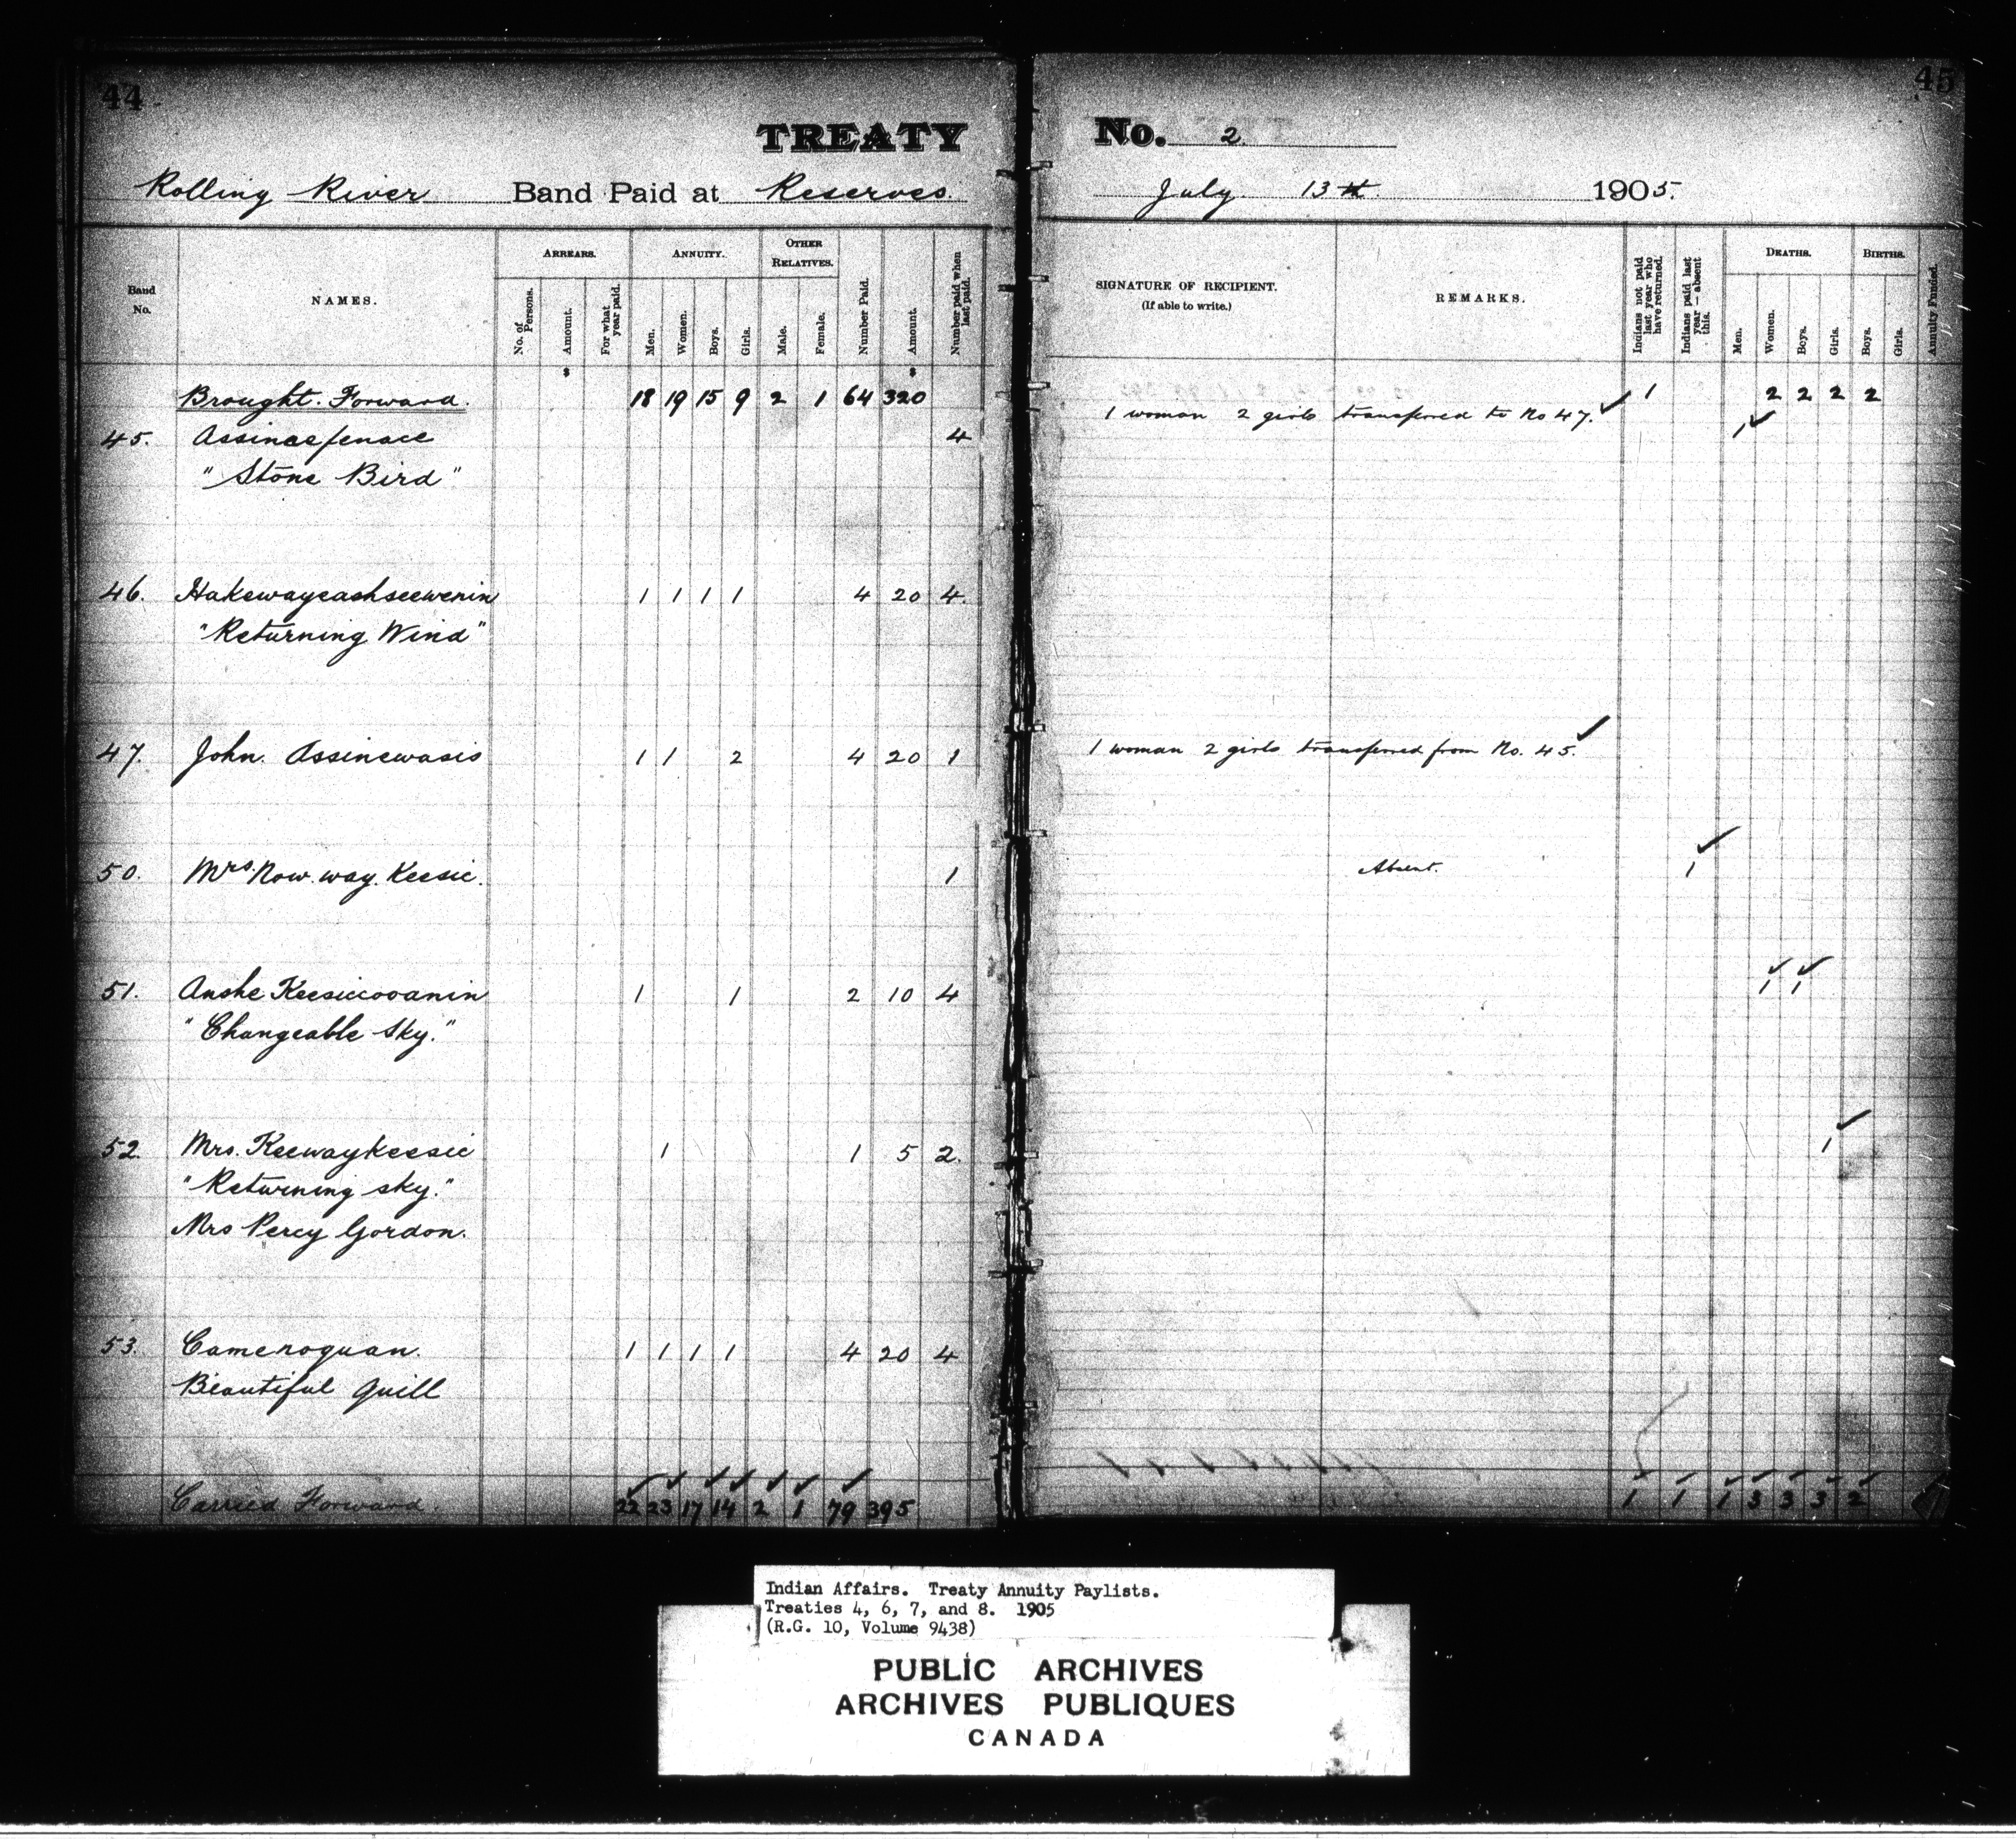 44
TREATY
Rolling River Band Paid at Reserves.
Band No.
NAMES.
ARREARS.
No. of Persons.
Amount.
For what year paid.
ANNUITY.
Men.
Women.
Boys.
Girls.
OTHER RELATIVES.
Male.
Female.
Number Paid.
Amount.
Number paid when last paid.
$ $
Brought Forward. 18 19 15 9 2 1 64 320
45. Assineepenace 4
"Stone Bird"
46. Hakewayeashseewenin 1 1 1 1 4 20 4.
"Returning Wind"
47. John Assinewasis 1 1 2 4 20 1
50. Mrs. Now.way.Keesic. 1
51. Anshe Keesiccooanin 1 1 2 10 4
"Changeable Sky."
52. Mrs. Keewaykeesic 1 1 5 2.
"Returning sky."
Mrs Percy Gordon.
53. Camenoquan. 1 1 1 1 4 20 4
Beautiful Quill
Carried Forward. 22 23 17 14 2 1 79 395
45
No. 2
July 13th 1905.
SIGNATURE OF RECIPIENT.
(If able to write.)
REMARKS.
Indians not paid last year who have returned.
Indians paid last year — absent this.
DEATHS.
Men.
Women.
Boys.
Girls.
BIRTHS.
Boys.
Girls.
Annuity Funded.
1 2 2 2 2
1 woman 2 girls transferred to No 47. ✓
1 ✓
1 woman 2 girls transferred from No. 45. ✓
Absent. 1 ✓
✓ ✓
1 1
1 ✓
1 1 1 3 3 3 2
Indian Affairs. Treaty Annuity Paylists.
Treaties 4, 6, 7, and 8. 1905
(R.G. 10, Volume 9438)
PUBLIC ARCHIVES
ARCHIVES PUBLIQUES
CANADA